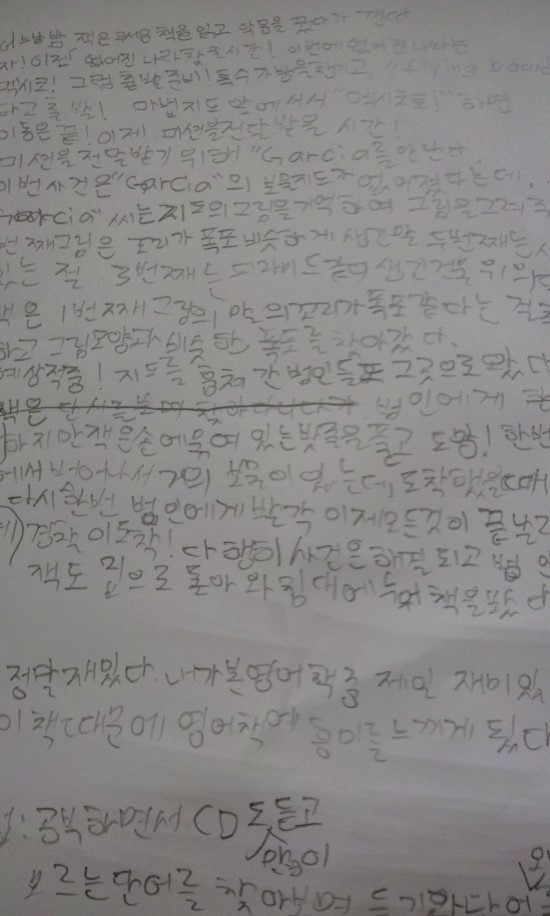 어느날 밤 잭은 무서운 책을 읽고 악몽을 꾸
자! 이젠 없어진 나라 찾을 시간! 이번에 없어진 나라는
멕시코! 그럼 출발 준비! 특수 가방을 챙기고,
하고 출발! 마법지도 안에 서서 "멕시코로!" 하면
이동은 끝! 이제 미션을 전달 받을 시간!
미션을 전달받기 위해 "Garcia를 만난다.
이번 사건은 "Garcia"의 보물지도가 없어졌다는데.
씨는 지도의 그림을 기억하여 그림을 그려
번째 그림은 꼬리가 폭포 비슷하게 생긴 말, 두번째는
있는 절 3번째는 피라미드같이 생긴 건축
잭은 1번째 그림의 말의 꼬리가 폭포같다는 걸
하고 그림모양과 비슷한 폭포를 찾아갔다.
예상적중! 지도를 훔쳐 간 범인들도 그곳으로 왔다
범인에게
하지만 잭은 손에 묶여 있는 밧줄을 풀고 도망! 한번
에서 벗어나서 보물이 있는데, 도착했을때
다시 한번 범인에게 발각 이제 모든것이 끝날
경찰이 도착! 다행히 사건은 해결되고 범인
잭도 집으로 돌아와 침대에 누워 책을
정말 재밌다. 내가 본 영어책중 제일 재미있
이 책 때문에 영어책에 흥미를 느끼게 됬다
공부하면서 CD도 듣고
많이
모르는 단어를 찾아보며